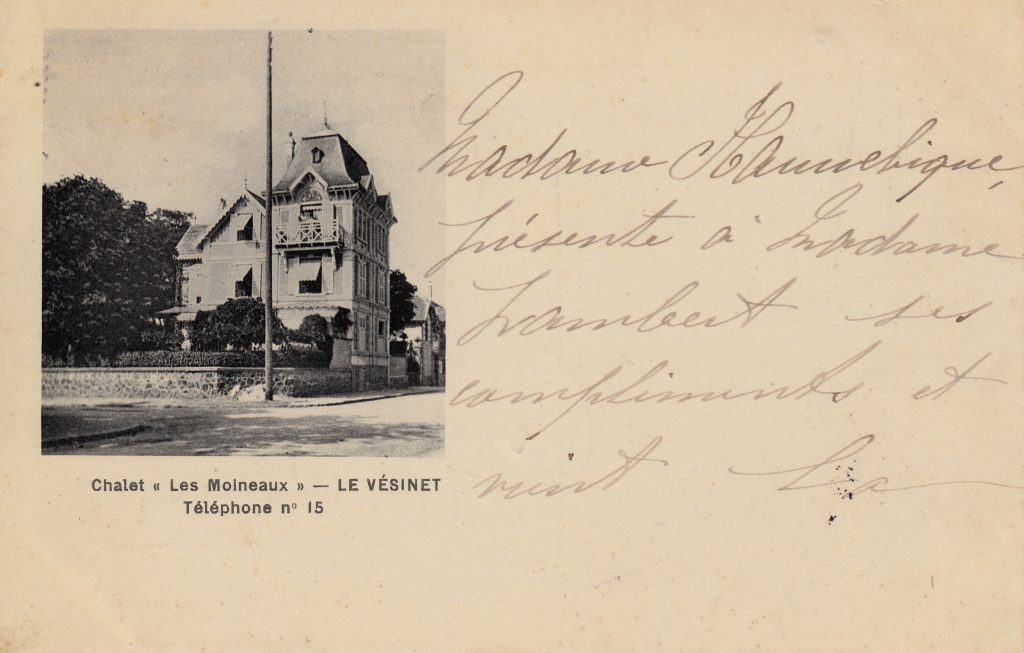 Madame Hannebique,
présente à Madame
Lambert ses
compliments et
vient La
Chalet « Les Moineaux » — LE VÉSINET
Téléphone nº 15